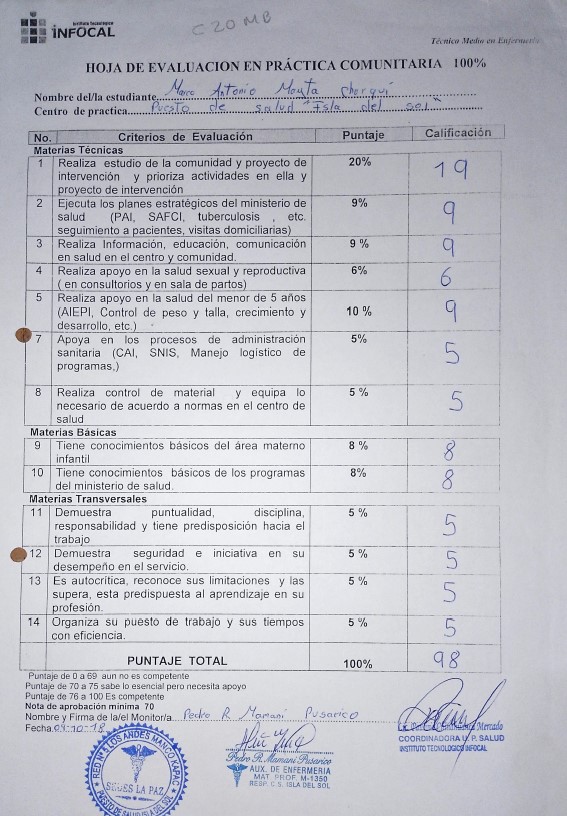 Instituto Tecnológico
INFOCAL
C 20 MB
Técnico Medio en Enfermería
HOJA DE EVALUACION EN PRÁCTICA COMUNITARIA 100%
Nombre del/la estudiante Marco Antonio Mayta
Centro de practica Puesto de salud "Isla del sol"
No. Criterios de Evaluación Puntaje Calificación
Materias Técnicas
1 Realiza estudio de la comunidad y proyecto de 20% 19
intervención y prioriza actividades en ella y
proyecto de intervención
2 Ejecuta los planes estratégicos del ministerio de 9% 9
salud (PAI, SAFCI, tuberculosis , etc.
seguimiento a pacientes, visitas domiciliarias)
3 Realiza Información, educación, comunicación 9 % 9
en salud en el centro y comunidad.
4 Realiza apoyo en la salud sexual y reproductiva 6% 6
( en consultorios y en sala de partos)
5 Realiza apoyo en la salud del menor de 5 años
(AIEPI, Control de peso y talla, crecimiento y 10 % 9
desarrollo, etc.)
7 Apoya en los procesos de administración 5% 5
sanitaria (CAI, SNIS, Manejo logístico de
programas,)
8 Realiza control de material y equipa lo 5 % 5
necesario de acuerdo a normas en el centro de
salud
Materias Básicas
9 Tiene conocimientos básicos del área materno 8 % 8
infantil
10 Tiene conocimientos básicos de los programas 8% 8
del ministerio de salud.
Materias Transversales
11 Demuestra puntualidad, disciplina, 5 % 5
responsabilidad y tiene predisposición hacia el
trabajo
12 Demuestra seguridad e iniciativa en su 5 % 5
desempeño en el servicio.
13 Es autocrítica, reconoce sus limitaciones y las 5 % 5
supera, esta predispuesta al aprendizaje en su
profesión.
14 Organiza su puesto de trabajo y sus tiempos 5 % 5
con eficiencia.
PUNTAJE TOTAL 100% 98
Puntaje de 0 a 69 aun no es competente
Puntaje de 70 a 75 sabe lo esencial pero necesita apoyo
Puntaje de 76 a 100 Es competente
Nota de aprobación mínima 70
Nombre y Firma de la/el Monitor/a Pedro R. Mamani Pusarico
Fecha 04-10-18
RED Nº 5 LOS ANDES MANCO KAPAC
SEDES LA PAZ
PUESTO DE SALUD ISLA DEL SOL
Pedro R. Mamani Pusarico
AUX. DE ENFERMERIA
MAT. PROF. M-1350
RESP. C.S. ISLA DEL SOL
Mercado
COORDINADORA U.P. SALUD
INSTITUTO TECNOLOGICO INFOCAL